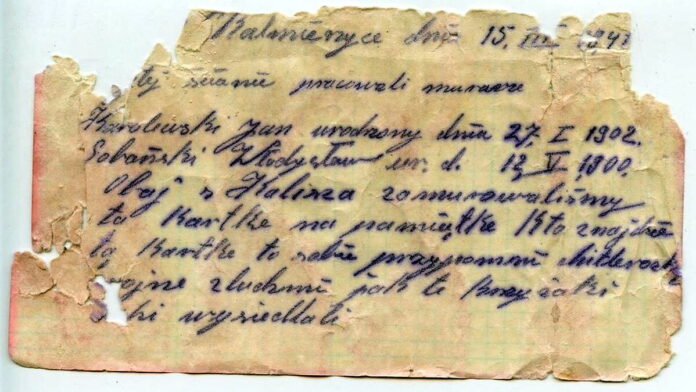 Kalmierzyce dnia 15. III 1941
tej ścianie pracowali murarze
Karolewski Jan urodzony dnia 27. I 1902.
Sobański Władysław ur. d. 12, V 1900.
Obaj z Kalisza zamurowaliśmy
tą Kartke na pamiątke Kto znajdzie
tą Kartke to sobie przypomni
wojne z luchmi jak te
ki wysiedlali